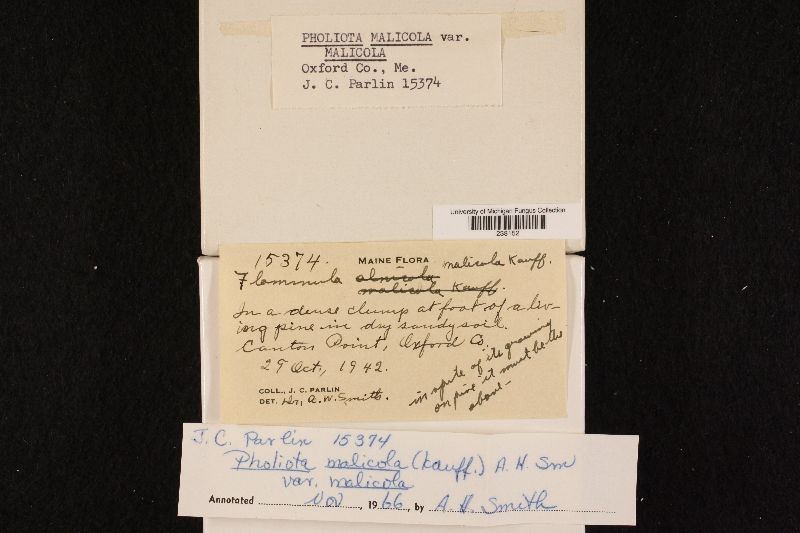 PHOLIOTA MALICOLA var.
MALICOLA
Oxford Co., Me.
J. C. Parlin 15374
University of Michigan Fungus Collection
238152
15374. MAINE FLORA
Flammula alnicola malicola Kauff.
malicola Kauff.
In a dense clump at foot of a liv-
ing pine in dry sandy soil.
Canton Point, Oxford Co.
29 Oct, 1942.
COLL., J. C. PARLIN
DET. Dr. A. W. Smith.
in spite of its growing
on pine it must be the
above-
J. C. Parlin 15374
Pholiota malicola (Kauff.) A. H. Sm
var. malicola
Annotated Nov, 1966, by A. H. Smith